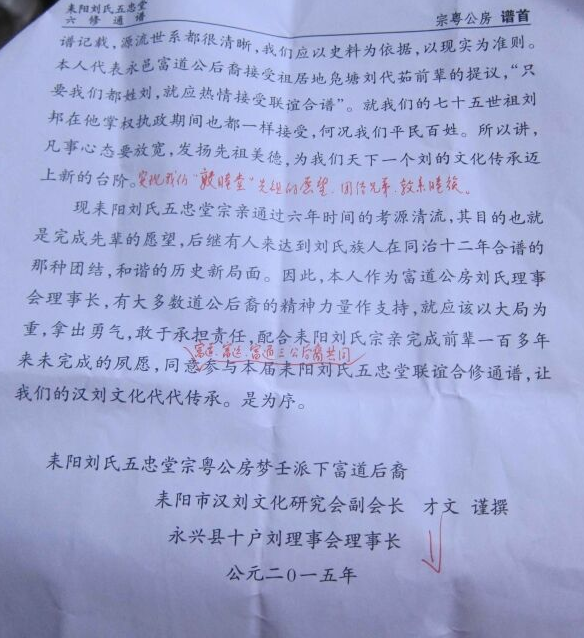 耒阳刘氏五忠堂
六修通谱
宗粤公房 谱首
谱记载，源流世系都很清晰，我们应以史料为依据，以现实为准则。
本人代表永邑富道公后裔接受祖居地凫塘刘代茹前辈的提议，“只
要我们都姓刘，就应热情接受联谊合谱”。就我们的七十五世祖刘
邦在他掌权执政期间也都一样接受，何况我们平民百姓。所以讲，
凡事心态要放宽，发扬先祖美德，为我们天下一个刘的文化传承迈
上新的台阶。实现我们“敦睦堂”先祖的愿望，团结兄弟，敦亲睦族。
现耒阳刘氏五忠堂宗亲通过六年时间的考源清流，其目的也就
是完成先辈的愿望，后继有人来达到刘氏族人在同治十二年合谱的
那种团结，和谐的历史新局面。因此，本人作为富道公房刘氏理事
会理事长，有大多数道公后裔的精神力量作支持，就应该以大局为
重，拿出勇气，敢于承担责任，配合耒阳刘氏宗亲完成前辈一百多年
富达、富通三公后裔共同
来未完成的夙愿，同意参与本届耒阳刘氏五忠堂联谊合修通谱，让
我们的汉刘文化代代传承。是为序。
耒阳刘氏五忠堂宗粤公房梦壬派下富道后裔
耒阳市汉刘文化研究会副会长 才文 谨撰
永兴县十户刘理事会理事长
公元二0一五年